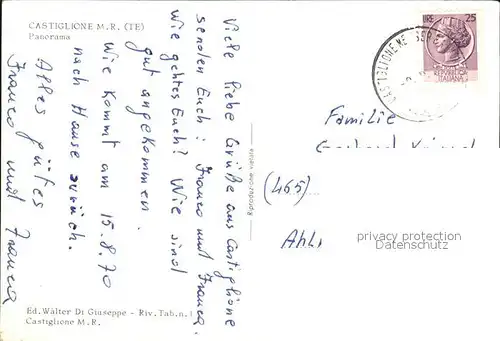 CASTIGLIONE M.R. (TE)
Panorama
Viele liebe Grüße aus Castiglione
senden Euch: Franco und Franca.
Wie gehts Euch? Wie sind
gut angekommen.
Wie kommt am 15.8.70
nach Hause zurück.
Alles gutes
Franco und Franca
Ed. Wàlter Di Giuseppe - Riv. Tab. n. 1
Castiglione M.R.
LIRE 25
ITALIANA
CASTIGLIONE
Familie
(465)
Ahl
privacy protection
Datenschutz